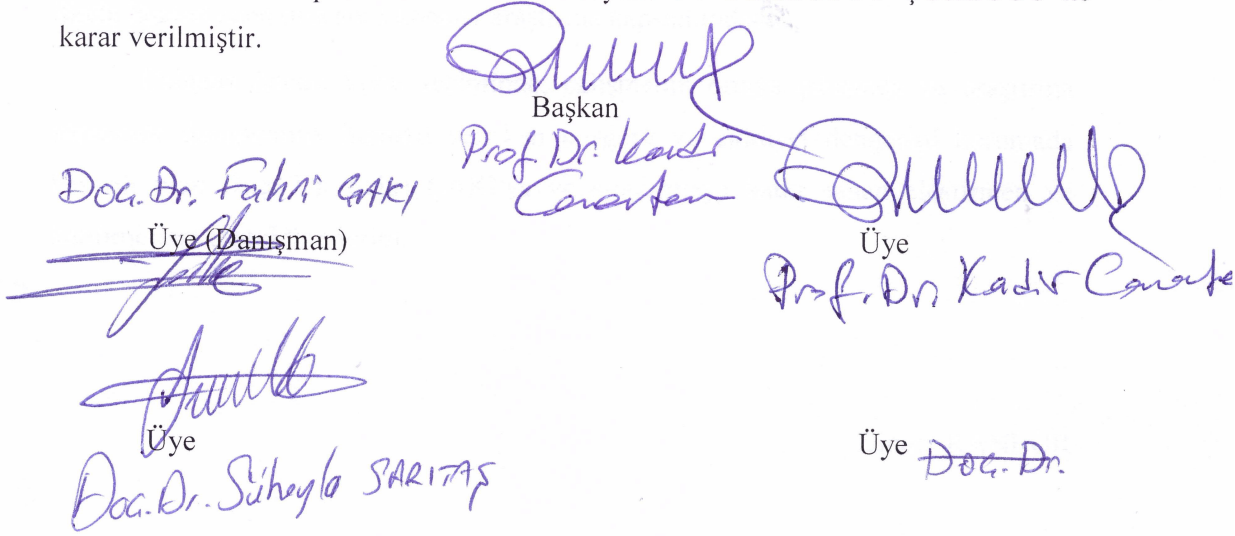 karar verilmiştir.
Başkan
Prof. Dr. Kadir
Canatan
Doç. Dr. Fahri ÇAKI
Üye (Danışman)
Üye
Prof. Dr. Kadir Canata
Üye
Doç. Dr. Süheyla SARITAŞ
Üye Doç. Dr.